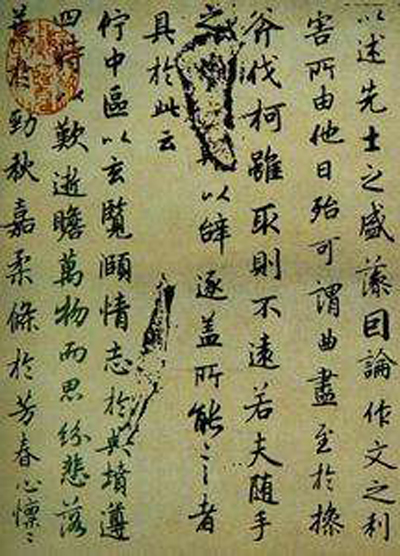 以述先士之盛藻因論作文之利
害所由他日殆可謂曲盡至於操
斧伐柯雖取則不遠若夫隨手
之以辞逐盖所能言者
具於此云
佇中區以玄覽頤情志於典墳遵
四時以歎逝瞻萬物而思紛悲落
葉於勁秋嘉柔條於芳春心懍〻